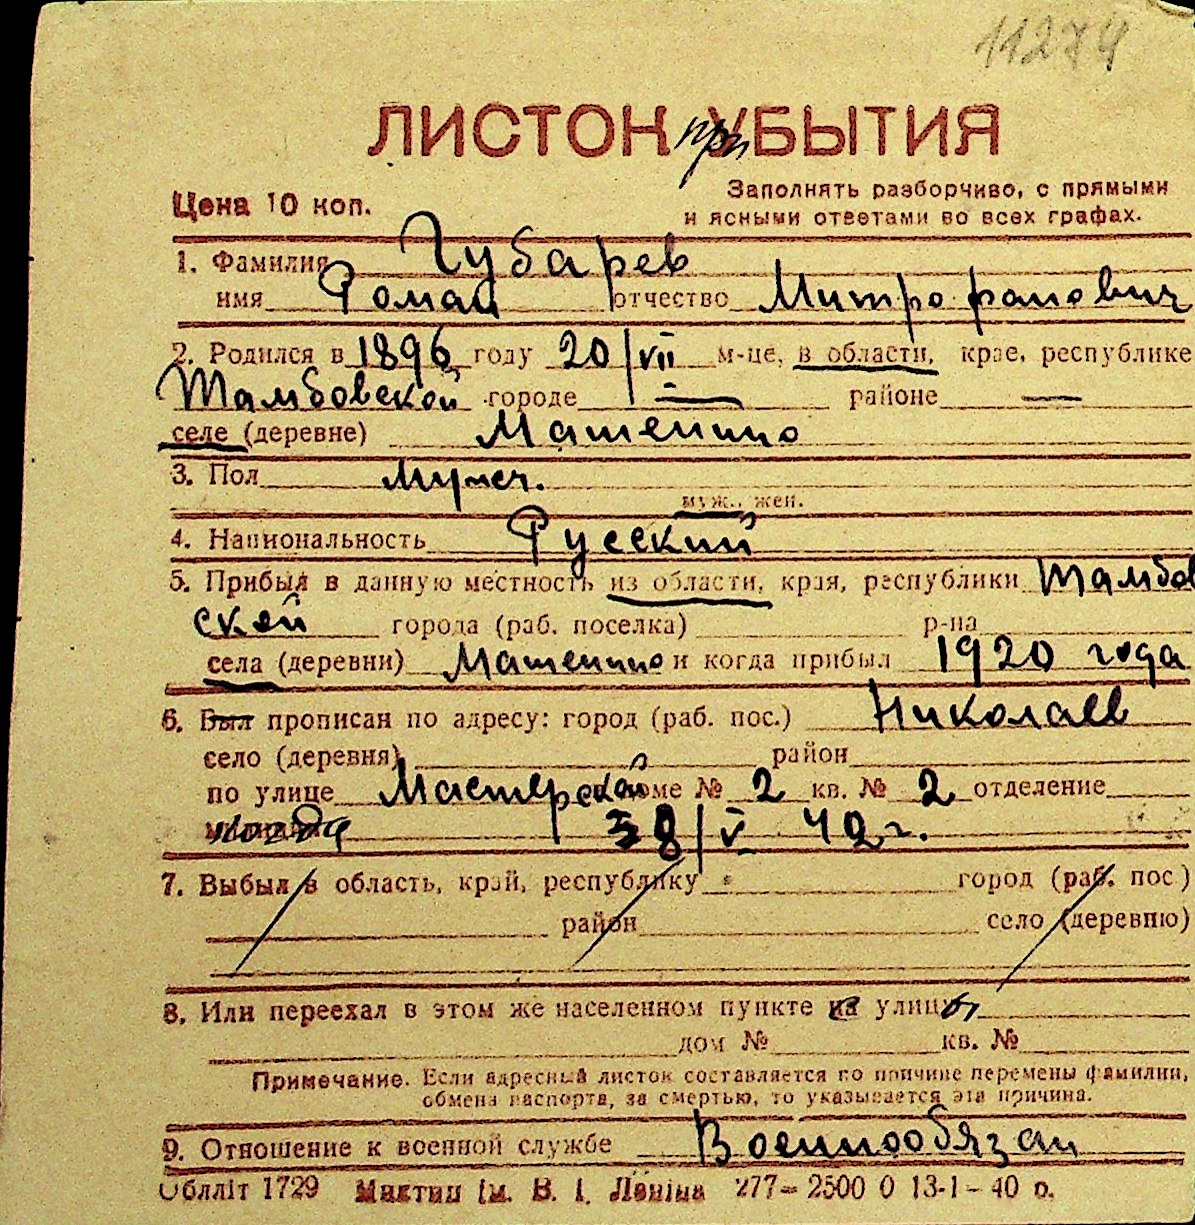 11274
ЛИСТОК при УБЫТИЯ
Цена 10 коп.
Заполнять разборчиво, с прямыми
и ясными ответами во всех графах.
1. Фамилия Чубарев
имя Роман отчество Митрофанович
2. Родился в 1896 году 20/VII м-це, в области, крае, республике
Тамбовской городе — районе —
селе (деревне) Матенино
3. Пол Мужч.
муж., жен.
4. Национальность Русский
5. Прибыл в данную местность из области, края, республики Тамбов
ской города (раб. поселка) р-на
села (деревни) Матенино и когда прибыл 1920 года
6. Был прописан по адресу: город (раб. пос.) Николаев
село (деревня) район
по улице Мастерской доме № 2 кв. № 2 отделение
8/V 40 г.
7. Выбыл в область, край, республику город (раб. пос.)
район село (деревню)
8. Или переехал в этом же населенном пункте улицы
дом № кв. №
Примечание. Если адресный листок составляется по причине перемены фамилии,
обмена паспорта, за смертью, то указывается эта причина.
9. Отношение к военной службе Военнообязан
Обллiт 1729 Миктип iм. В. I. Ленiна 277—2500 0 13-1-40 р.